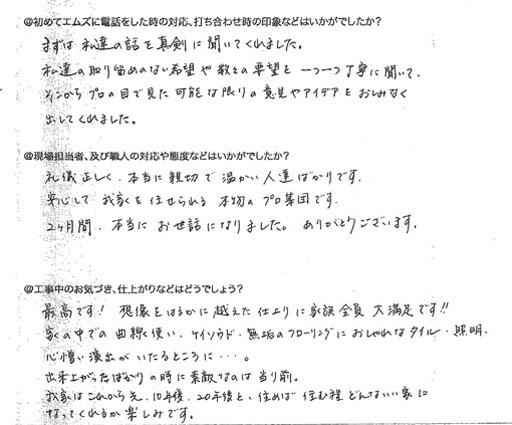 @初めてエムズに電話をした時の対応、打ち合わせ時の印象などはいかがでしたか?
まずは私達の話を真剣に聞いてくれました。
私達の取り留めのない希望や数々の要望を一つ一つ丁寧に聞いて、
そこからプロの目で見た可能な限りの意見やアイデアをおしみなく
出してくれました。
@現場担当者、及び職人の対応や態度などはいかがでしたか?
礼儀正しく、本当に親切で温かい人達ばかりです。
安心して我家を任せられる本物のプロ集団です。
2ヶ月間、本当にお世話になりました。ありがとうございます。
@工事中のお気づき、仕上がりなどはどうでしょう?
最高です!想像をはるかに越えた仕上りに家族全員大満足です!!
家の中での曲線使い、ケイソウド、無垢のフローリングにおしゃれなタイル・照明、
心憎い演出がいたるところに・・・。
出来上がったばかりの時に素敵なのは当り前。
我家はこれから先、10年後、20年後と、住めば住む程どんないい家に
なってくれるか楽しみです。